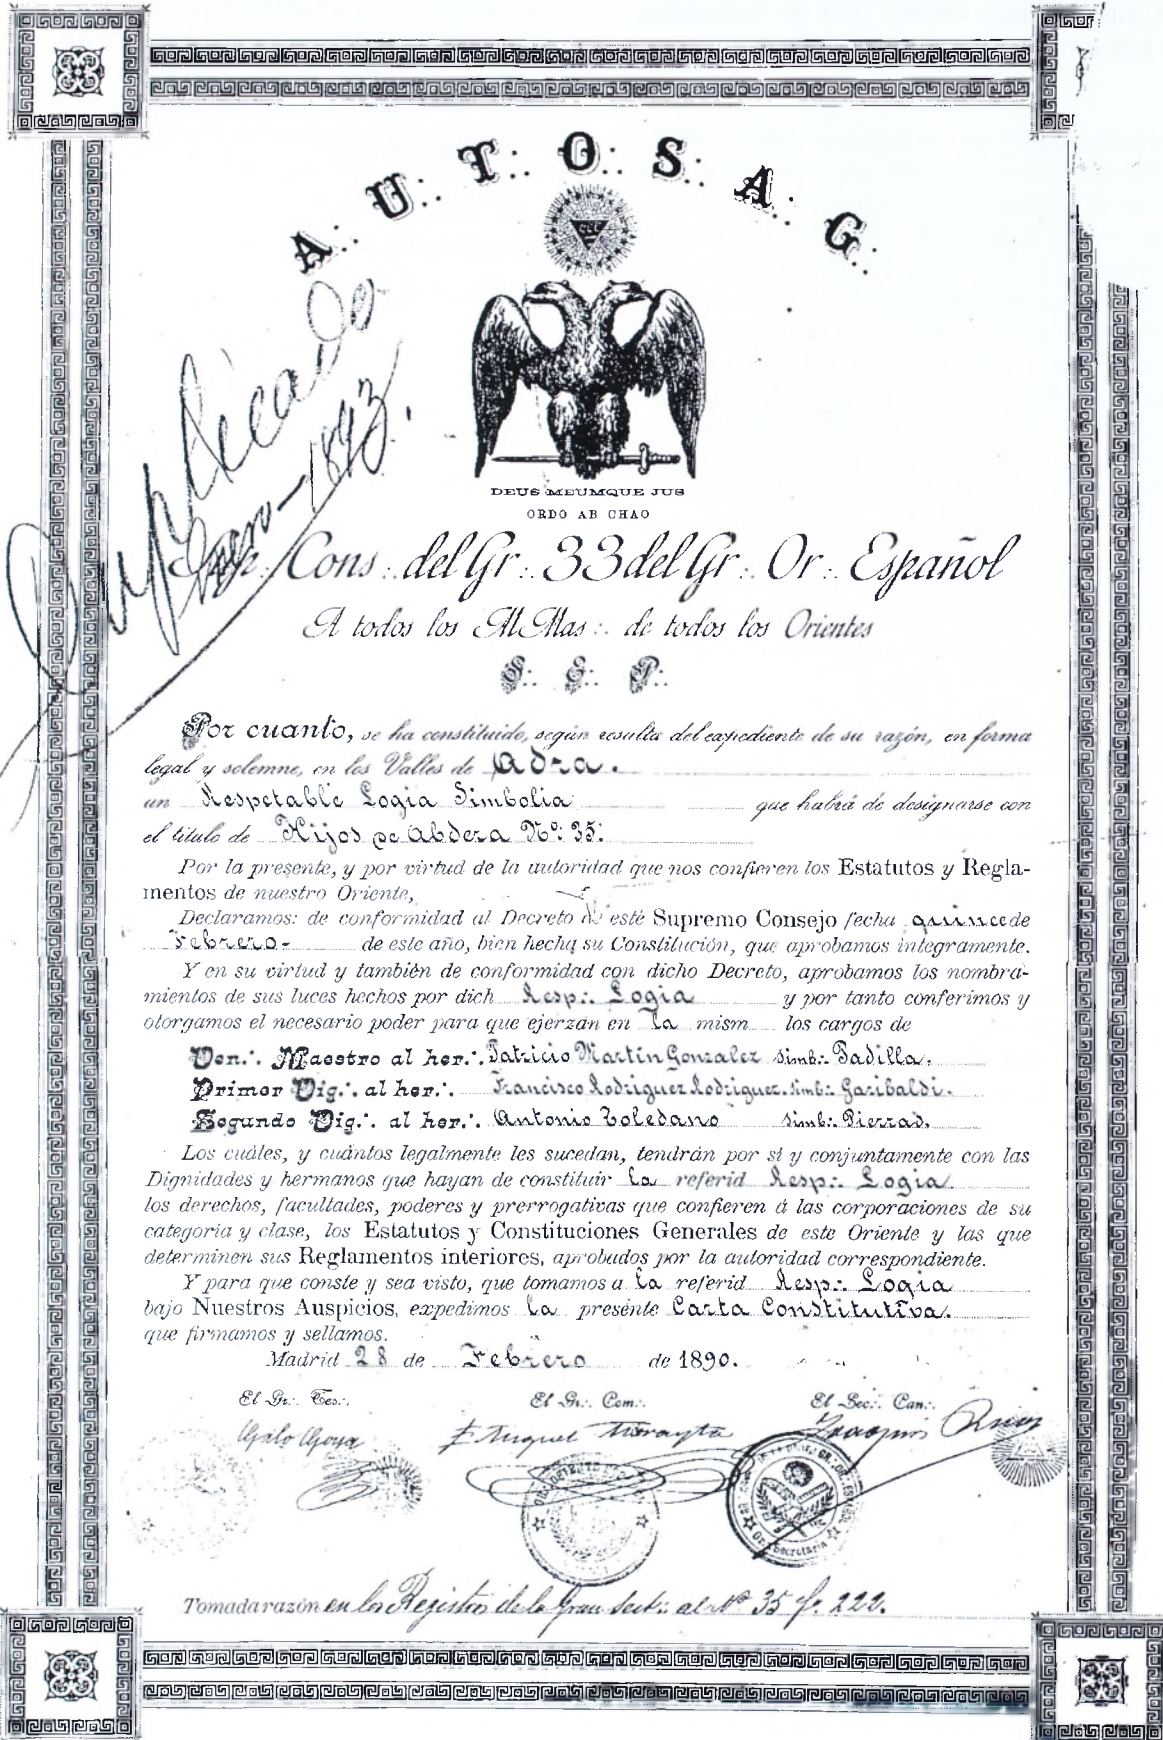 A∴ U∴ T∴ O∴ S∴ A∴ G∴
DEUS MEUMQUE JUS
ORDO AB CHAO
Duplicado
1893.
Cons∴ del Gr∴ 33 del Gr∴ Or∴ Español
A todos los MMas∴ de todos los Orientes
S∴ E∴ P∴
Por cuanto, se ha constituido, según resulta del expediente de su razón, en forma
legal y solemne, en los Valles de Adra.
un Respetable Logia Simbolia que habrá de designarse con
el título de Hijos de Abdera Nº 35:
Por la presente, y por virtud de la autoridad que nos confieren los Estatutos y Regla-
mentos de nuestro Oriente,
Declaramos: de conformidad al Decreto de este Supremo Consejo fecha quince de
Febrero- de este año, bien hecha su Constitución, que aprobamos íntegramente.
Y en su virtud y también de conformidad con dicho Decreto, aprobamos los nombra-
mientos de sus luces hechos por dich Resp∴ Logia y por tanto conferimos y
otorgamos el necesario poder para que ejerzan en la mism los cargos de
Ven∴ Maestro al her∴ Patricio Martin Gonzalez Simb∴ Padilla.
Primer Vig∴ al her∴ Francisco Rodriguez Rodriguez. Simb∴ Garibaldi.
Segundo Vig∴ al her∴ Antonio Toledano Simb∴ Pierrad.
Los cuáles, y cuántos legalmente les sucedan, tendrán por sí y conjuntamente con las
Dignidades y hermanos que hayan de constituir la referid Resp∴ Logia
los derechos, facultades, poderes y prerrogativas que confieren á las corporaciones de su
categoría y clase, los Estatutos y Constituciones Generales de este Oriente y las que
determinen sus Reglamentos interiores, aprobados por la autoridad correspondiente.
Y para que conste y sea visto, que tomamos a la referid Resp∴ Logia
bajo Nuestros Auspicios, expedimos la presente Carta Constitutiva.
que firmamos y sellamos.
Madrid 28 de Febrero de 1890.
El Gr∴ Tes∴ El Gr∴ Com∴ El Sec∴ Can∴
Galo Goya Miguel Morayta Joaquin Ruiz
Tomada razón en los Registros de la Gran Secr∴ al Nº 35 f. 222.